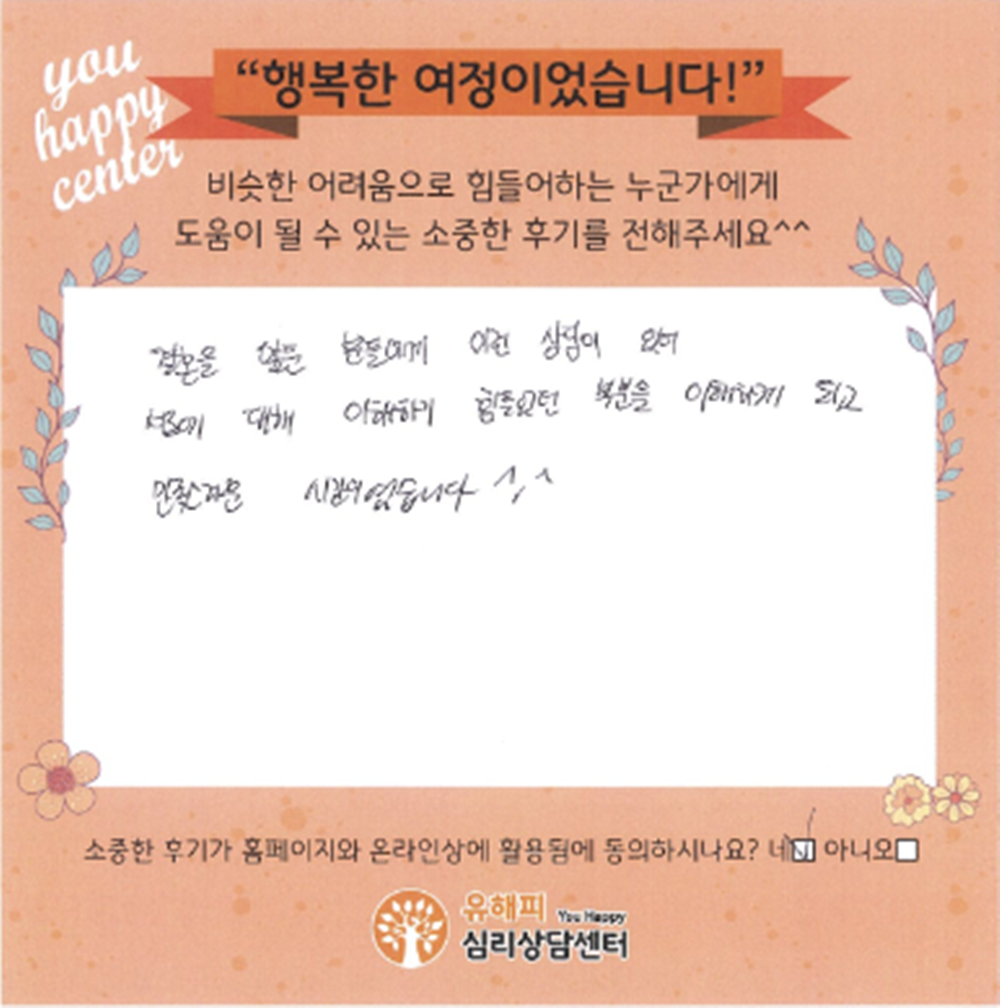 you
happy
center
“행복한 여정이었습니다!”
비슷한 어려움으로 힘들어하는 누군가에게
도움이 될 수 있는 소중한 후기를 전해주세요^^
결혼을 앞둔 분들에게 이런 상담이 있어
서로에 대해 이해하기 힘들었던 부분을 이해하게 되고
만족스러운 시간이었습니다 ^^
소중한 후기가 홈페이지와 온라인상에 활용됨에 동의하시나요? 네 아니오
유해피 You Happy
심리상담센터